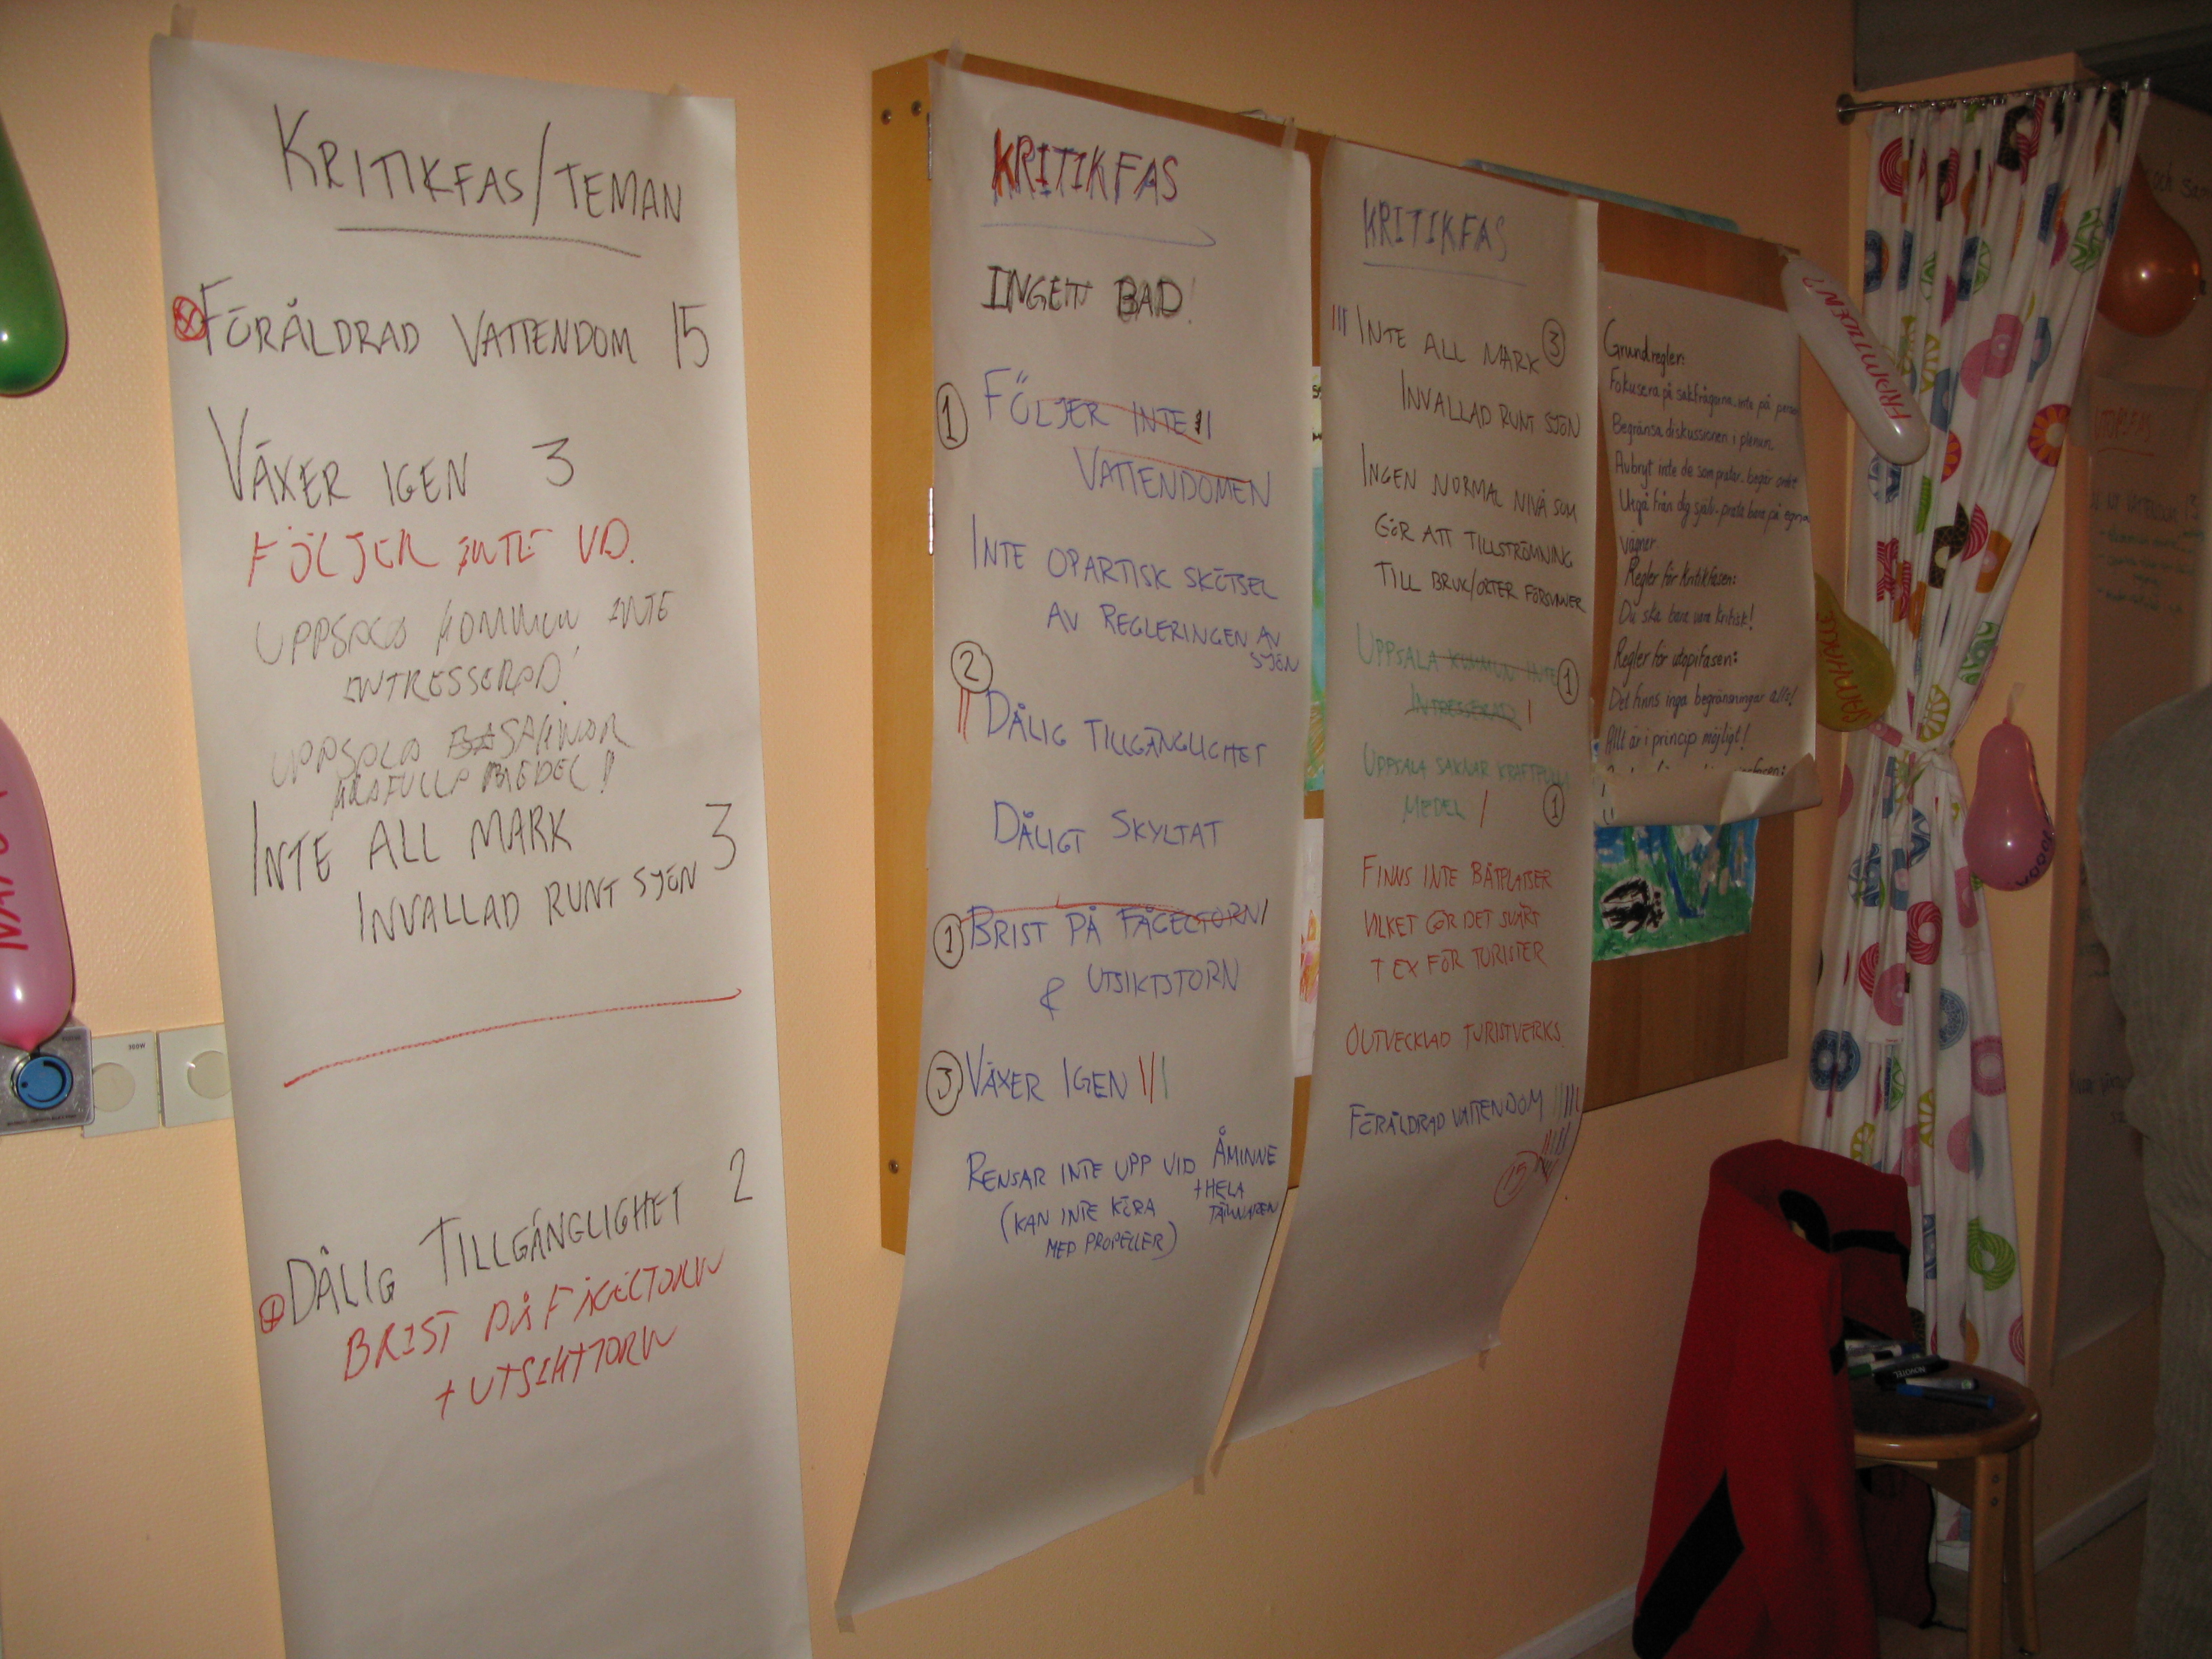 KRITIKFAS/TEMAN
FÖRÅLDRAD VATTENDOM 15
VÄXER IGEN 3
FÖLJER INTE VD.
UPPSALA KOMMUN INTE
INTRESSERAD!
UPPSALA
MEDEL!
INTE ALL MARK
INVALLAD RUNT SJÖN 3
DÅLIG TILLGÄNGLIGHET 2
BRIST PÅ FÅGELTORN
+ UTSIKTTORN
KRITIKFAS
INGET BAD!
1 FÖLJER INTE II
VATTENDOMEN
INTE OPARTISK SKÖTSEL
AV REGLERINGEN AV
SJÖN
2
II DÅLIG TILLGÄNGLIGHET
DÅLIGT SKYLTAT
1 BRIST PÅ FÅGELTORN I
& UTSIKTSTORN
3 VÄXER IGEN III
RENSAR INTE UPP VID ÅMINNE
+ HELA
(KAN INTE KÖRA TÄMNAREN
MED PROPELLER)
KRITIKFAS
III INTE ALL MARK 3
INVALLAD RUNT SJÖN
INGEN NORMAL NIVÅ SOM
GÖR ATT TILLSTRÖMNING
TILL BRUK/ORTER FÖRSVINNER
UPPSALA KOMMUN INTE 1
INTRESSERAD I
UPPSALA SAKNAR KRAFTFULLA
MEDEL I 1
FINNS INTE BÅTPLATSER
VILKET GÖR DET SVÅRT
T EX FÖR TURISTER
OUTVECKLAD TURISTVERKS.
FÖRÅLDRAD VATTENDOM
15
Grundregler:
Fokusera på sakfrågorna, inte på person
Begränsa diskussionen i plenum
Avbryt inte de som pratar, begär ordet
Utgå från dig själv, prata bara på egna
vägnar
Regler för Kritikfasen:
Du ska bara vara kritisk!
Regler för utopifasen:
Det finns inga begränsningar alls!
Allt är i princip möjligt!
FRAMTIDEN?
NOVOTEL
300W